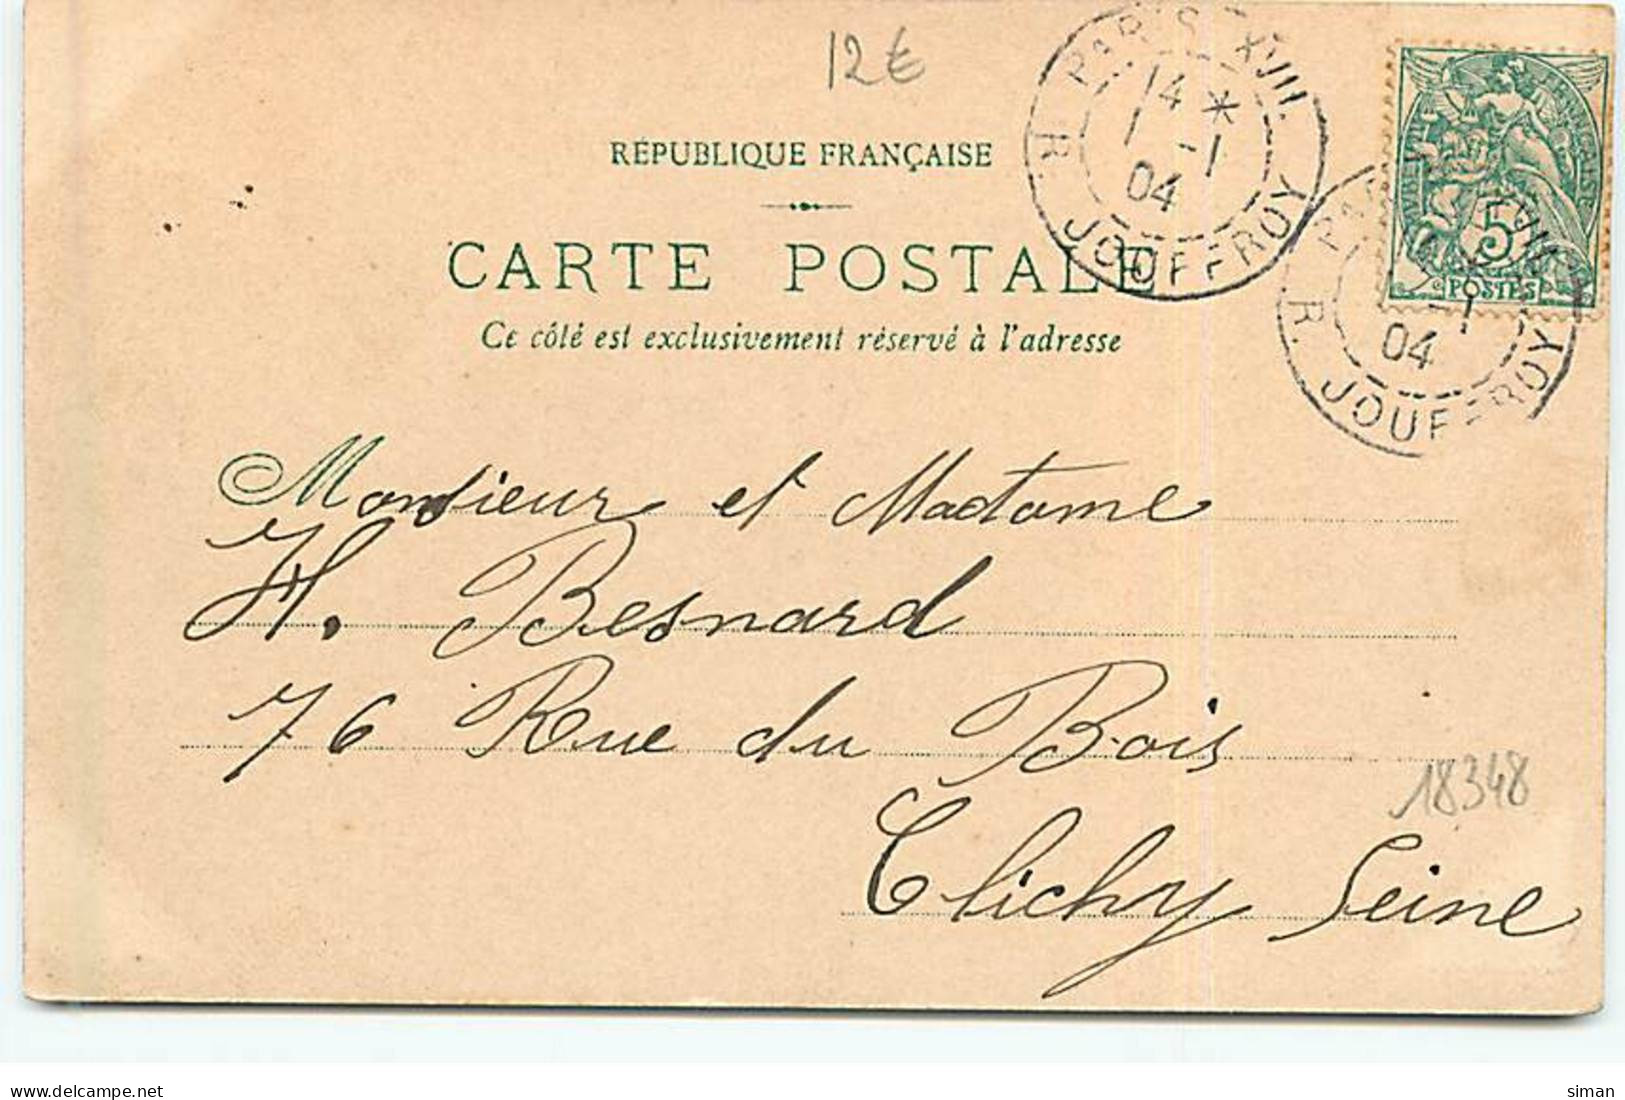 12€
RÉPUBLIQUE FRANÇAISE
CARTE POSTALE
Ce côté est exclusivement réservé à l'adresse
PARIS XVII. R. JOUFFROY
14 *
1 -1
04
5
POSTES
PARIS XVII R. JOUFFROY
-1
04
Monsieur et Madame
H. Besnard
76 Rue du Bois
18348
Clichy Seine
www.delcampe.net
siman